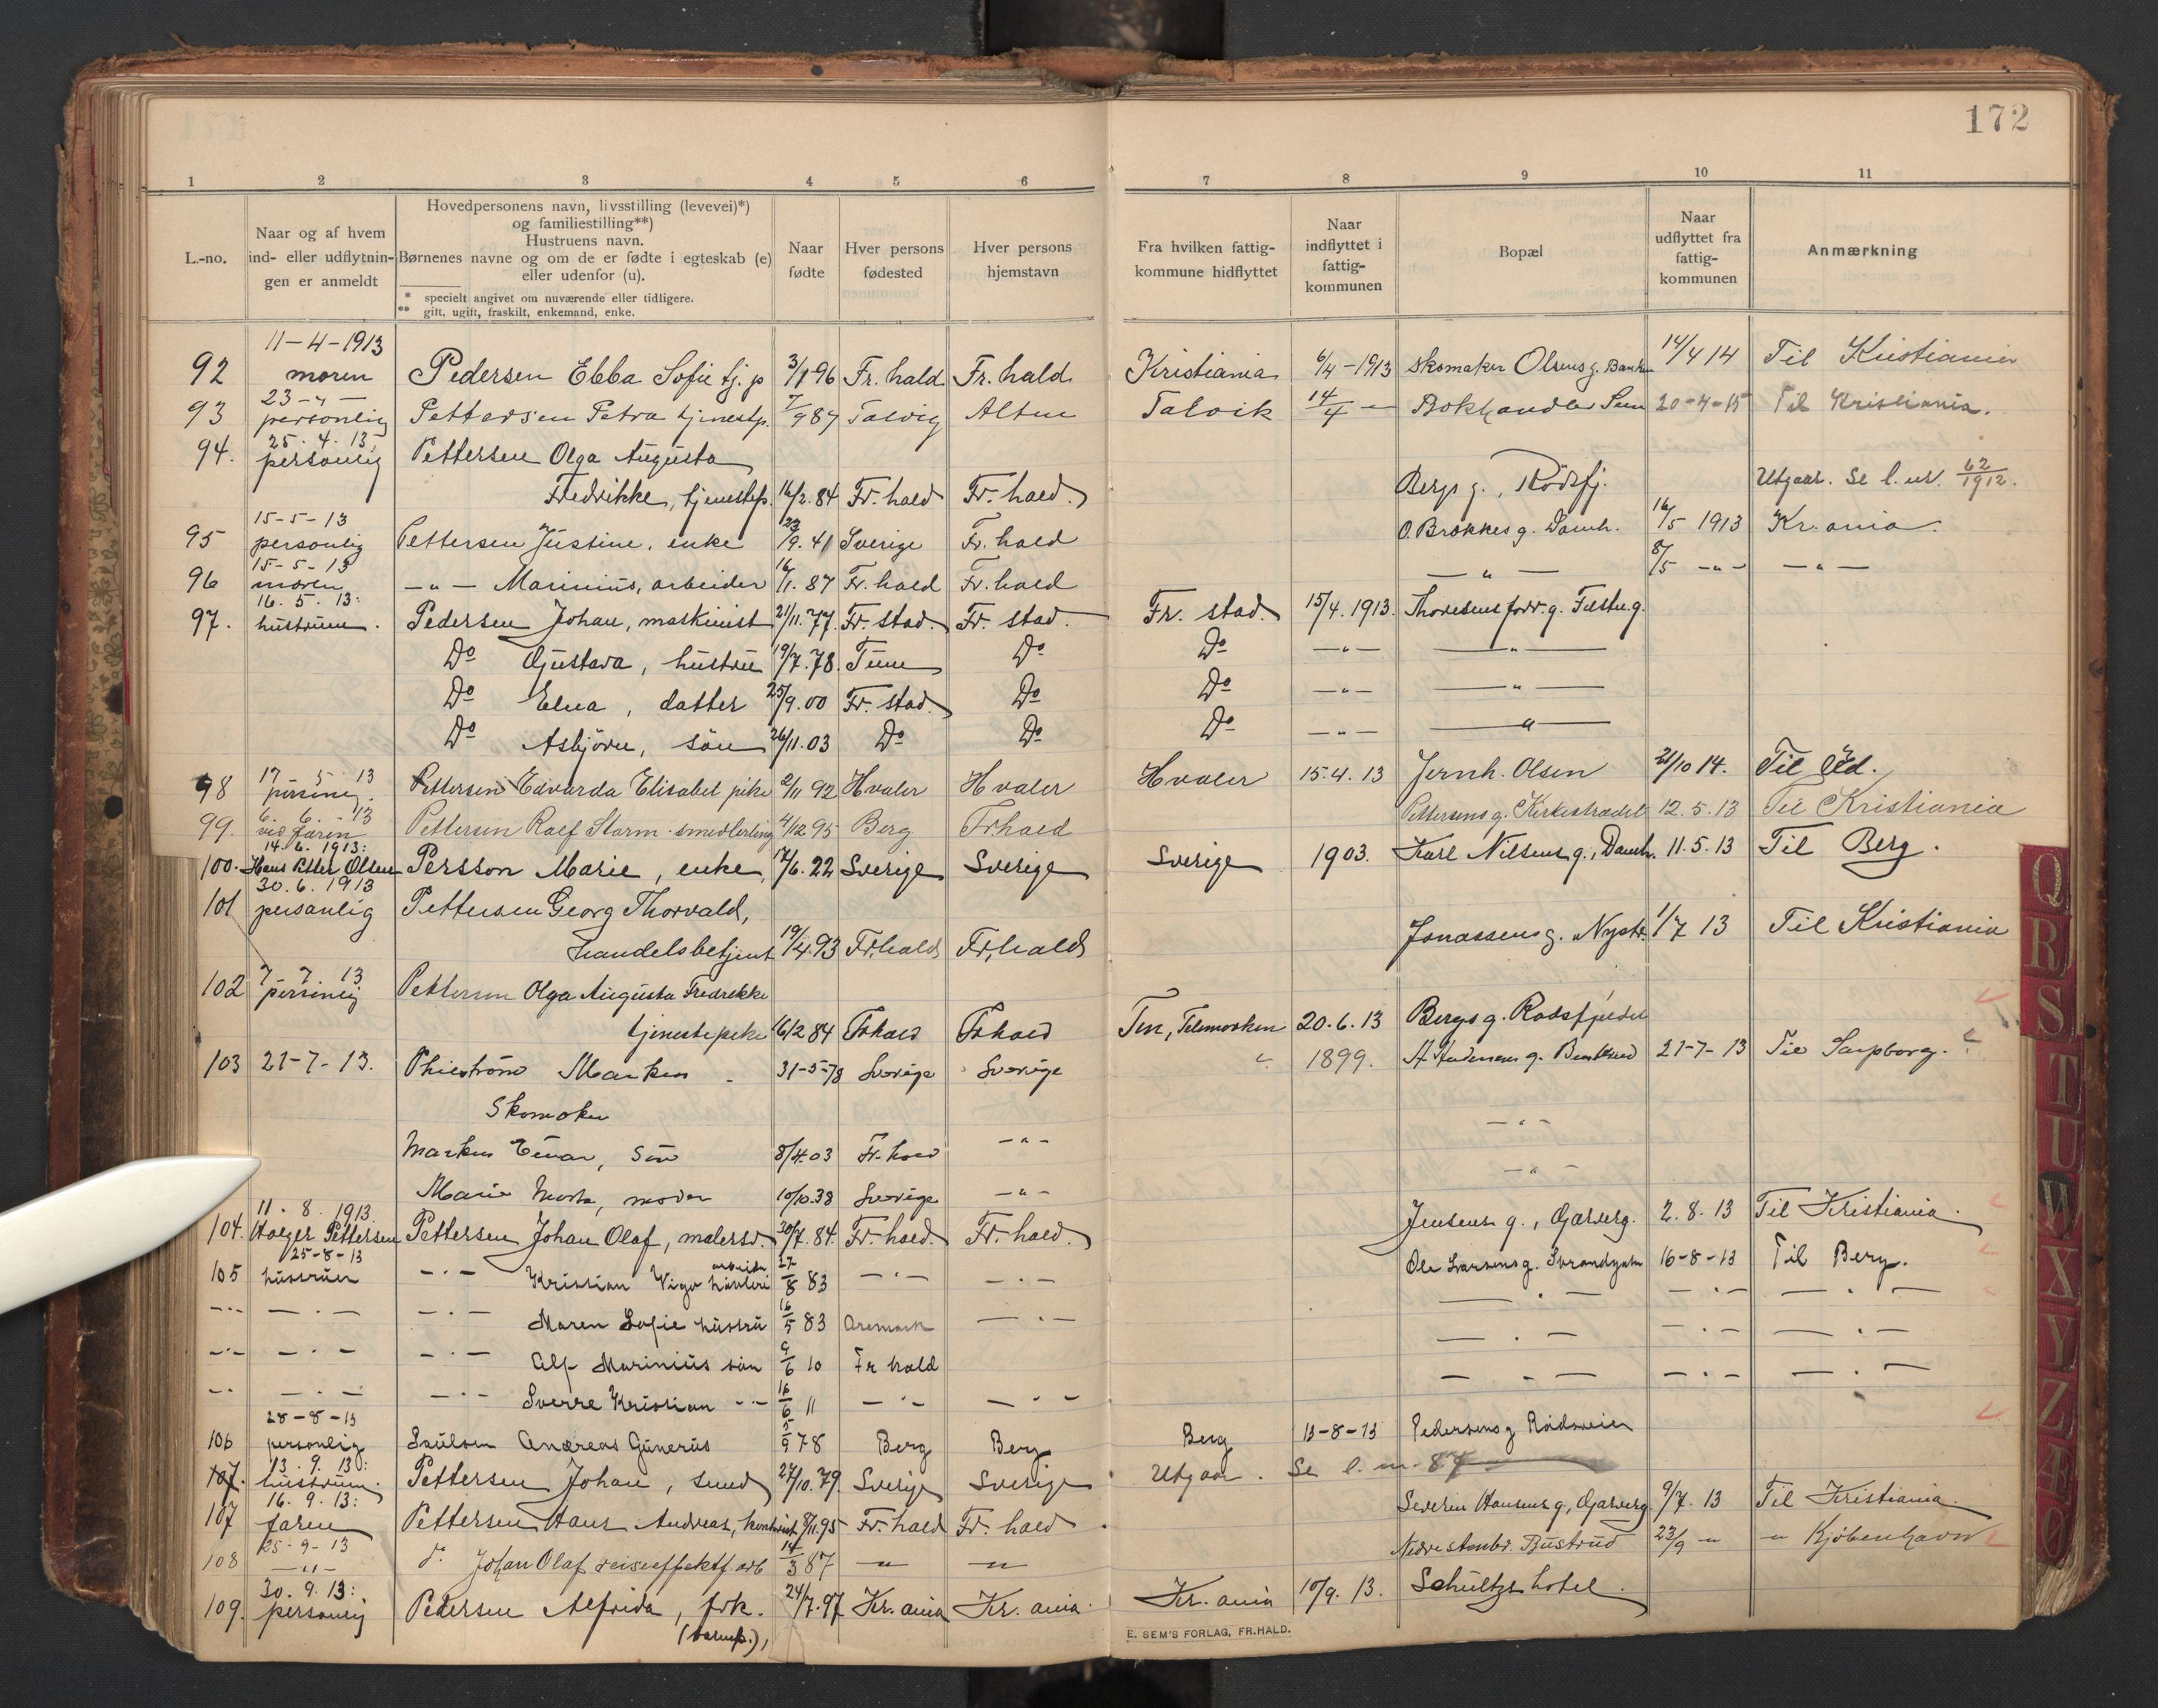 172
1 2 3 4 5 6 7 8 9 10 11
L.-no.
Naar og af hvem
ind- eller udflytnin-
gen er anmeldt
Hovedpersonens navn, livsstilling (levevei)*)
og familiestilling**)
Hustruens navn.
Børnenes navne og om de er fødte i egteskab (e)
eller udenfor (u).
* specielt angivet om nuværende eller tidligere.
** gift, ugift, fraskilt, enkemand, enke.
Naar
fødte
Hver persons
fødested
Hver persons
hjemstavn
Fra hvilken fattig-
kommune hidflyttet
Naar
indflyttet i
fattig-
kommunen
Bopæl
Naar
udflyttet fra
fattig-
kommunen
Anmærkning
11-4-1913
92 moren Pedersen Ebba Sofie tj. p 3/1 96 Fr. hald Fr. hald Kristiania 6/4-1913 Skomaker Olsens g. 14/4 14 Til Kristiania
23-"-
93 personlig Pettersen Petra tjenestp. 7/9 87 Talvig Alten Talvik 14/4 - Bokhandler Sem 20-4-15 Til Kristiania.
25.4.13,
94. personlig Pettersen Olga Augusta
Fredrikke, tjenestep. 16/2.84 Fr. hald Fr. hald. Bergs g., Rödsfj. Utgaar. Se l. nr. 62/1912.
15-5-13
95 personlig Pettersen Justine, enke 23/9.41 Sverige Fr. hald O. Brökkes g. Damh. 16/5 1913 Kr.ania.
15-5-13
96 moren -"- Marinius, arbeider 16/1.87 Fr. hald Fr. hald -"- 8/5 -"- -"-
16.5.13:
97. hustruen. Pedersen Johan, maskinist 21/11.77. Fr. stad. Fr. stad. Fr. stad. 15/4.1913. Thoresens forr. g.
Do Gustava, hustru 19/7.78. Tune Do Do -"- -"-
Do Elna, datter 25/9.00 Fr. stad. Do Do -"- -"-
Do Asbjörn, sön 26/11.03 Do Do Do -"- -"-
17-5-13
98 personlig. Pettersen Edvarda Elisabet pike 2/11 92 Hvaler Hvaler Hvaler 15.4.13 Jernh. Olsen 21/10 14. Til Id.
6.6.-13
99. ved faren Pettersen Ralf Storm. smedlærling 4/12 95 Berg Frhald Pettersens g. Kirkestrædet 12.5.13 Til Kristiania
14.6.1913:
100. Hans Petter Olsen Persson Marie, enke, 17/6.22 Sverige Sverige Sverige 1903. Karl Nilsens g., Damh. 11.5.13 Til Berg.
30.6.1913
101 personlig Pettersen Georg Thorvald,
handelsbetjent 19/4.93 Fr.hald Fr.hald Jonassens g. Nystr. 1/7 13 Til Kristiania
7-7-13
102 personlig Pettersen Olga Augusta Fredrikke
tjenestepike 16/2 84 Frhald Frhald Telemarken 20.6.13 Bergs g. Rødsfjeldet
103 21-7-13. Markus - 31-5-78 Sverige Sverige " 1899. A. Andersens g. 21-7-13 Til Sarpborg.
Skomaker
Markus Einar, Sön 8/4.03 Fr. hald -"- -"-
Marie moder 10/10.38 Sverige -"- -"-
11.8.1913
104. Holger Pettersen Pettersen Johan Olaf, malersv. 30/7.84. Fr. hald. Fr. hald. Jensens g., Garverg. 2.8.13 Til Kristiania.
25-8-13
105 hustruen -"- Kristian Vigo arbeider høvleri 27/8 83 -"- -"- Ole Larsens g. Strandgaten 16-8-13 Til Berg.
-"- -"- -"- Maren Sofie hustru 16/5 83 Aremark -"- -"- -"- -"-
-"- -"- -"- Alf Marinius sön 9/6 10 Fr hald -"- -"- -"-
-"- -"- -"- Sverre Kristian -"- 16/6 11 -"- -"- -"- -"- -"-
28-8-13
106 personlig Andreas Gunerus 5/9 78 Berg Berg Berg 13-8-13 Pedersens g Rødsveien
13.9.13:
107. hustruen. Pettersen Johan, smed 27/10.79. Sverige Sverige Utgaar. Se l. nr. 87
16.9.13:
107 faren Pettersen Hans Andreas, kontorist 8/11.95 Fr. hald Fr. hald Severin Hansens g, Garverg. 9/7.13 Til Kristiania.
25-9-13
108 -"- do Johan Olaf reiseeffektf. arb 14/3 87 " " Nedre stenbr. Bustrud 23/9 " " Kjøbenhavn
30.9.13:
109. personlig Pedersen Alfrida, frk. 24/7.97 Kr.ania Kr.ania. Kr.ania 10/9.13. Schultzs hotel.
(barnep.),
E. SEM'S FORLAG, FR.HALD.
Q
R
S
T
U
W
X
Y
Z
Æ
Ø